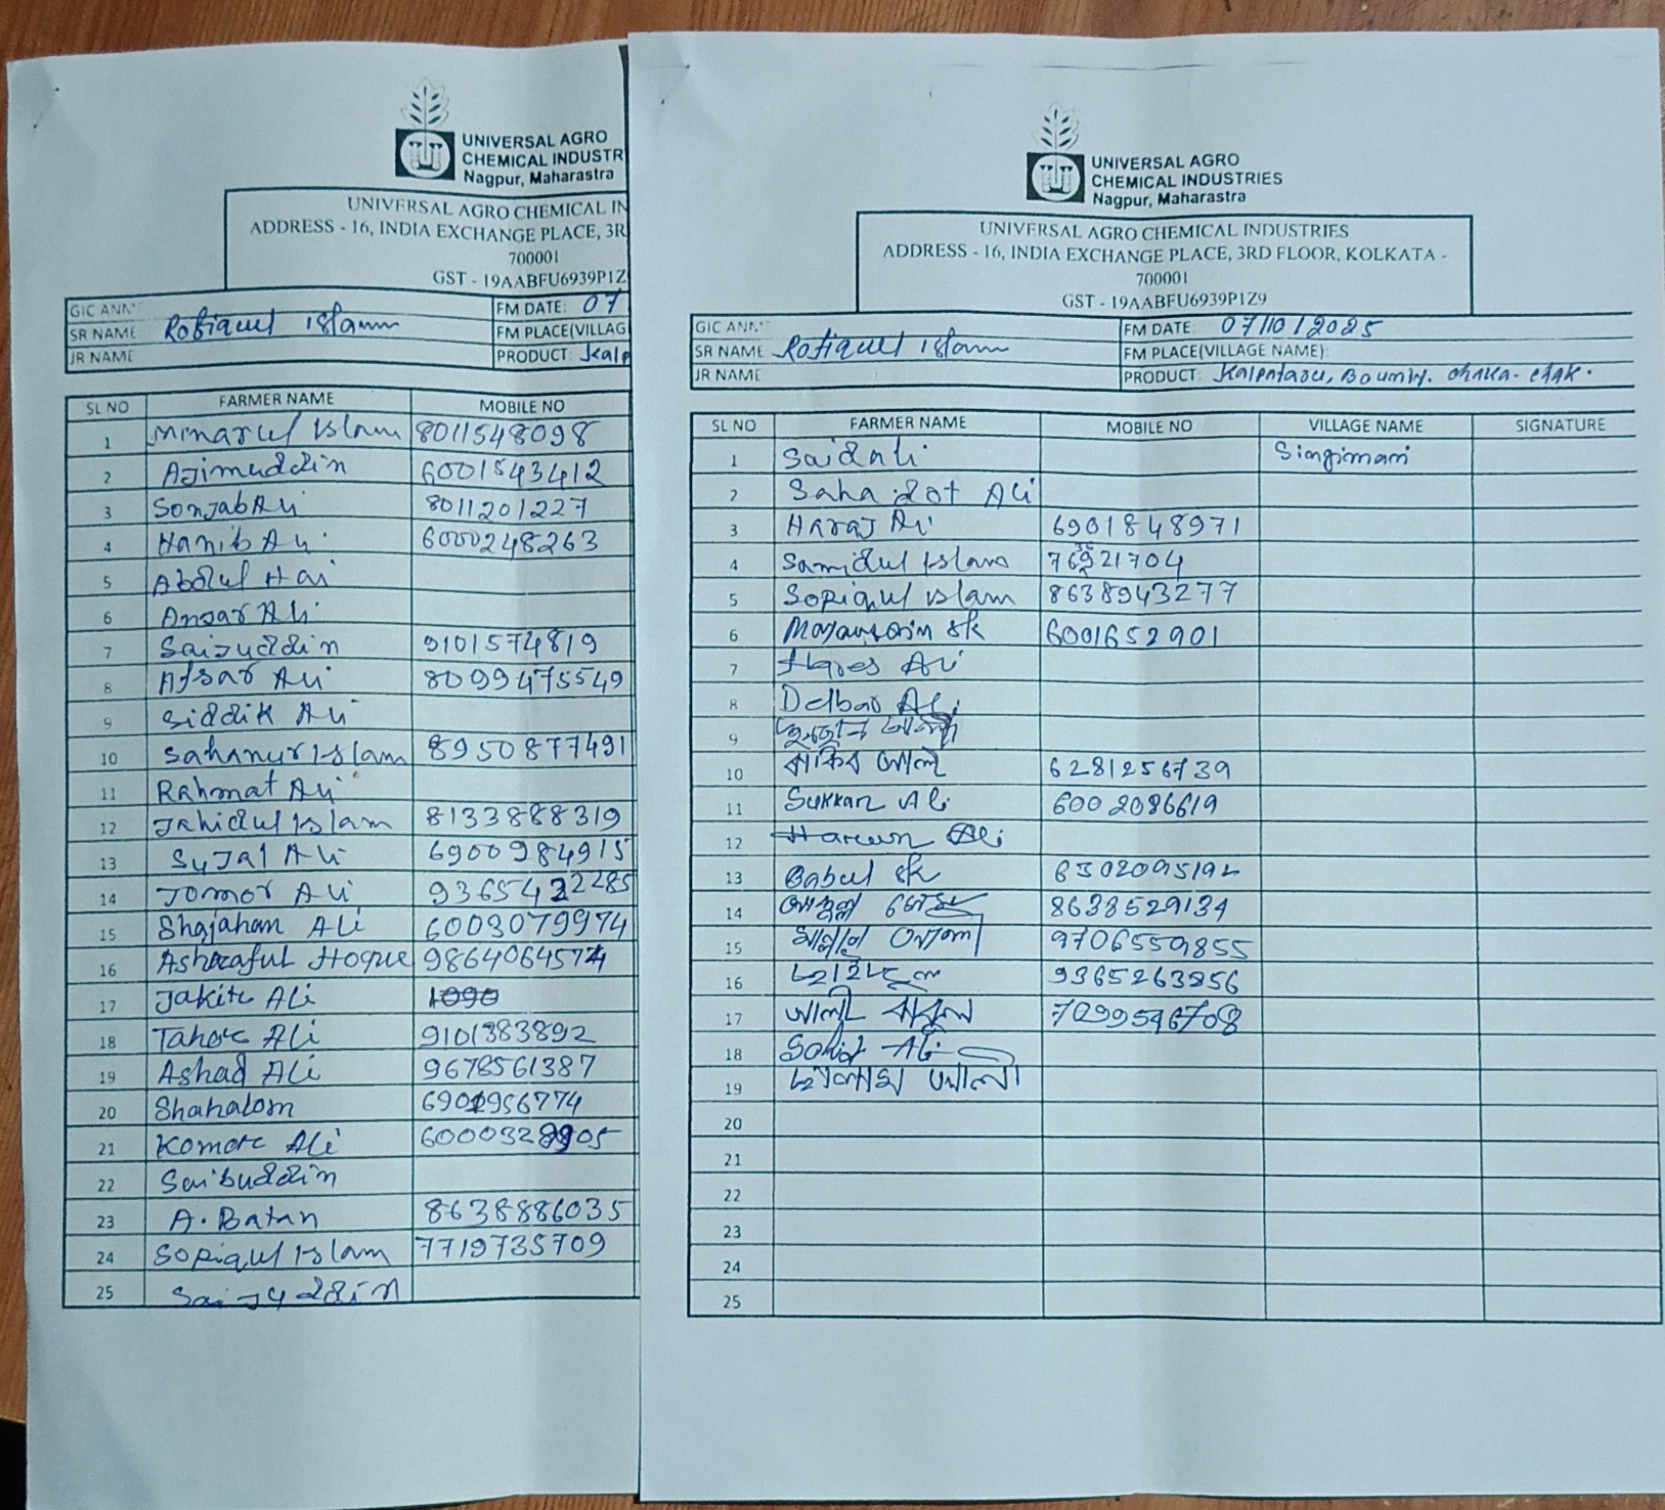 UNIVERSAL AGRO
CHEMICAL INDUSTR
Nagpur, Maharastra
UNIVERSAL AGRO CHEMICAL IN
ADDRESS - 16, INDIA EXCHANGE PLACE, 3R
700001
GST - 19AABFU6939P1Z
GIC ANM FM DATE: 07
SR NAME Rofiqul islam FM PLACE(VILLAG
JR NAME PRODUCT: Kalp
SL NO FARMER NAME MOBILE NO
1 Minarul Islam 8011548098
2 Ajimuddin 6001543412
3 Sonjab Ali 8011201227
4 Hanib Ali 6000248263
5 Abdul Hai
6 Ansar Ali
7 Saizuddin 9101574819
8 Afsar Ali 8099475549
9 Siddik Ali
10 Sahanur Islam 8950877491
11 Rahmat Ali
12 Jahidul Islam 8133888319
13 Sujal Ali 6900984915
14 Jomor Ali 9365422285
15 Shajahan Ali 6003079974
16 Ashraful Hoque 9864064574
17 Jakir Ali
18 Taher Ali 9101383892
19 Ashad Ali 9678561387
20 Shahalom 6901956774
21 Komor Ali
22 Saibuddin
23 A. Batan 8638886035
24 Sopiqul Islam 7719735709
25 Saizuddin
UNIVERSAL AGRO
CHEMICAL INDUSTRIES
Nagpur, Maharastra
UNIVERSAL AGRO CHEMICAL INDUSTRIES
ADDRESS - 16, INDIA EXCHANGE PLACE, 3RD FLOOR, KOLKATA -
700001
GST - 19AABFU6939P1Z9
GIC ANM FM DATE: 07/10/2025
SR NAME Rofiqul islam FM PLACE(VILLAGE NAME):
JR NAME PRODUCT: Kalpataru, Boumin. Chaka-chak.
SL NO FARMER NAME MOBILE NO VILLAGE NAME SIGNATURE
1 Said Ali Singimari
2 Saha dot Ali
3 Haraj Ali 6901848971
4 Samidul Islam
5 Sopiqul islam 8638943277
6 sk 6001652901
7 Hares Ali
8 Delbar Ali
9
10 জাকির আলী 6281256739
11 Sukkar Ali 6002086619
12 Harun Ali
13 Babul sk
14 8638529134
15 9706559855
16 9365263856
17 আলী 7099546708
18 Sohid Ali
19 আলী
20
21
22
23
24
25